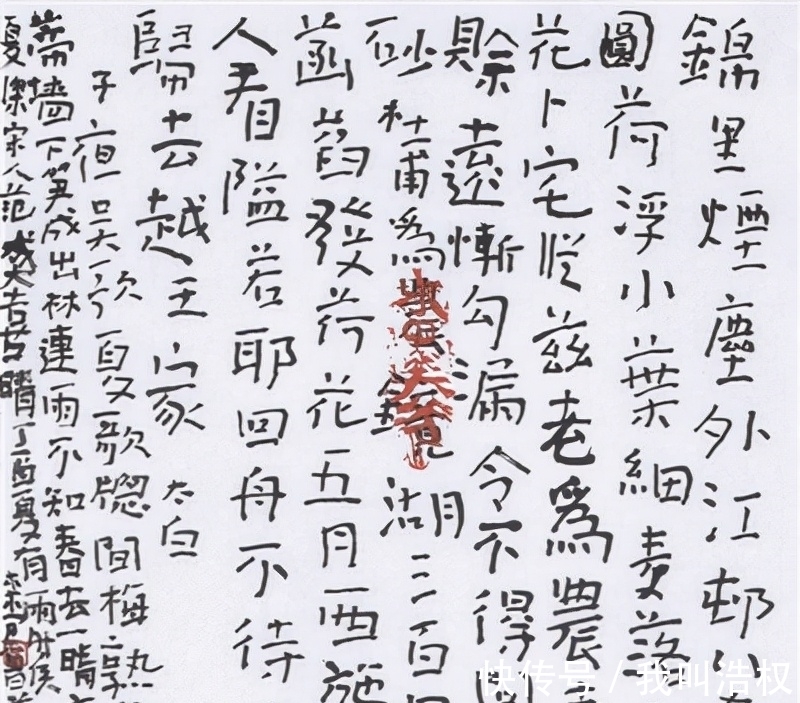 錦里煙塵外江邨八
圓荷浮小葉細麦落
花卜宅從兹老爲農
賒遠慚勾漏令不得
砂杜甫爲 鏡湖三百
菡萏發荷花五月西施
人看隘若耶回舟不待
歸去越王家 太白
子夜吴歌夏歌牕間梅熟
蒂墻下笋成出林連雨不知春去一晴
夏深宋人范成大喜晴丁酉夏又有雨時候
快传号 / 我叫浩权